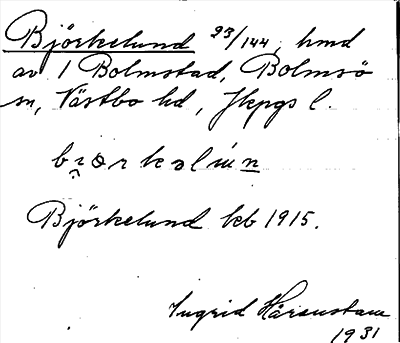 Björkelund 23/144, hmd
av 1 Bolmstad, Bolmsö
sn, Västbo hd, Jkpgs l.
Björkelund kb 1915.
Ingrid Härenstam
1931